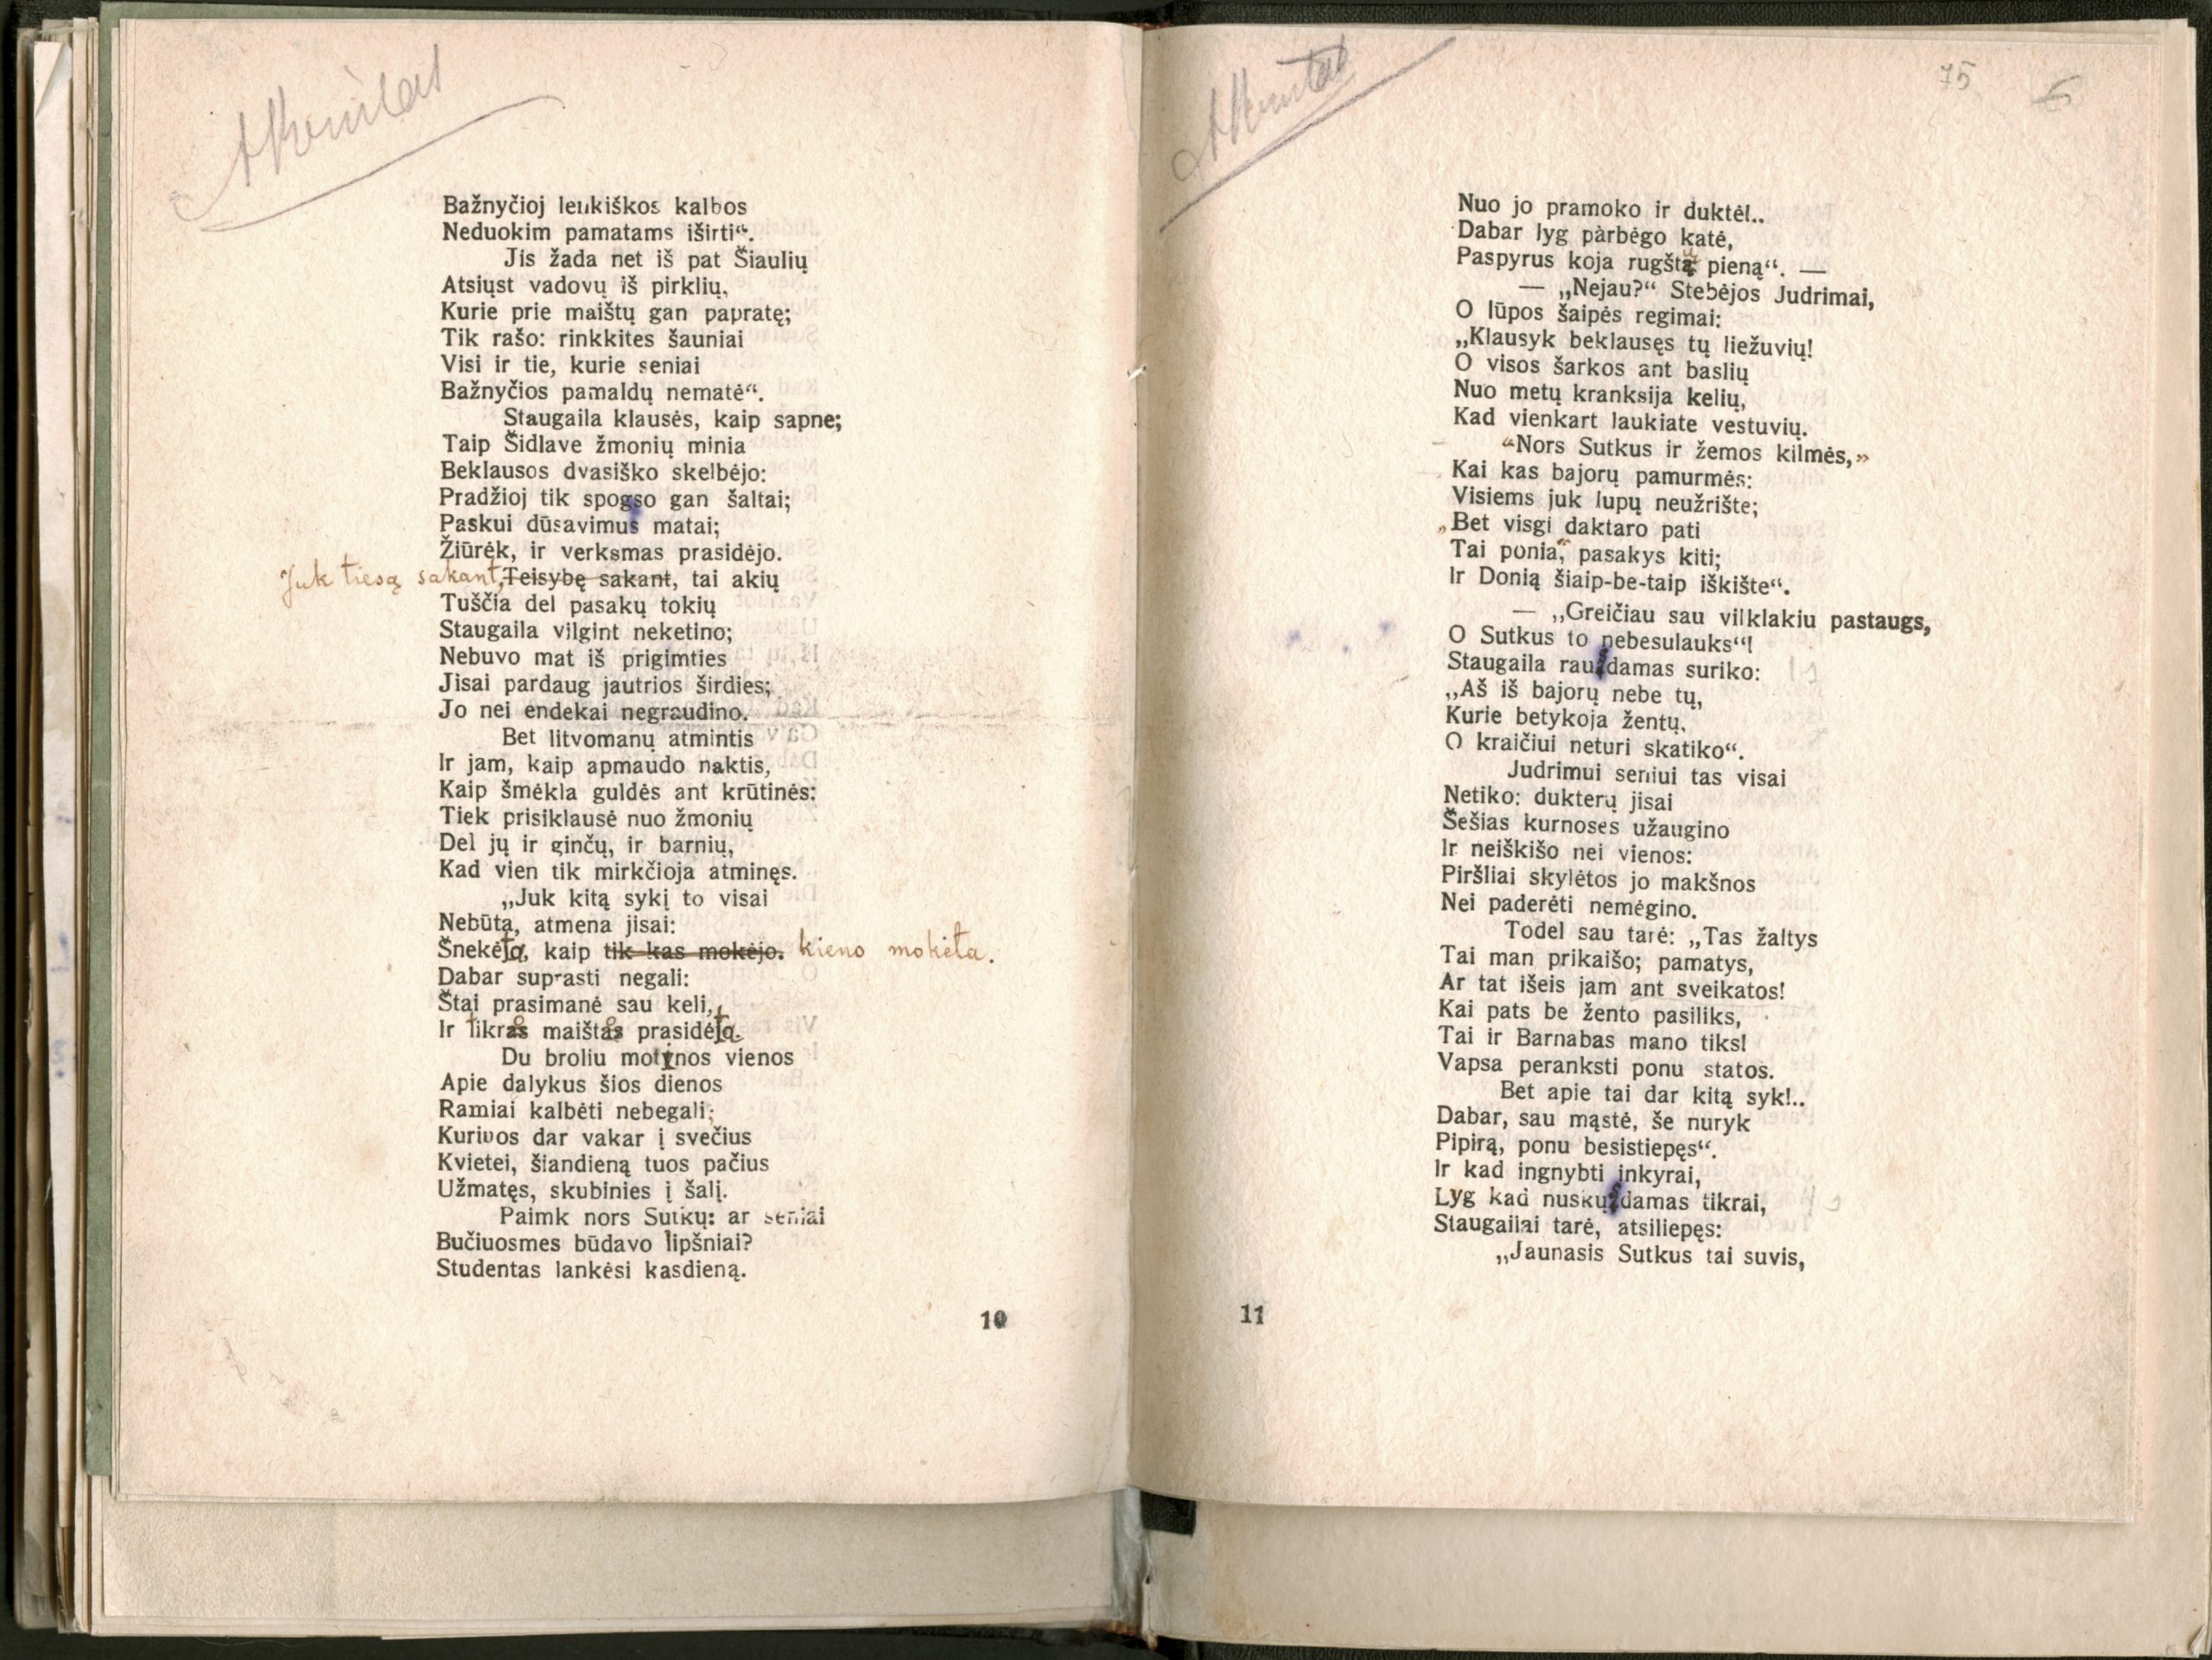 Bažnyčioj lenkiškos kalbos
Neduokim pamatams iširti“.
Jis žada net iš pat Šiaulių
Atsiųst vadovų iš pirklių,
Kurie prie maištų gan papratę;
Tik rašo: rinkkites šauniai
Visi ir tie, kurie seniai
Bažnyčios pamaldų nematė“.
Staugaila klausės, kaip sapne;
Taip Šidlave žmonių minia
Beklausos dvasiško skelbėjo:
Pradžioj tik spogso gan šaltai;
Paskui dūsavimus matai;
Žiūrėk, ir verksmas prasidėjo.
Juk tiesą sakant, Teisybę sakant, tai akių
Tuščia del pasakų tokių
Staugaila vilgint neketino;
Nebuvo mat iš prigimties
Jisai pardaug jautrios širdies;
Jo nei endekai negraudino.
Bet litvomanų atmintis
Ir jam, kaip apmaudo naktis,
Kaip šmėkla guldės ant krūtinės:
Tiek prisiklausė nuo žmonių
Del jų ir ginčų, ir barnių,
Kad vien tik mirkčioja atminęs.
„Juk kitą sykį to visai
Nebūta, atmena jisai:
Šnekėta, kaip tik kas mokėjo. kieno mokėta.
Dabar suprasti negali:
Štai prasimanė sau keli,
Ir tikro maišto prasidėta.
Du broliu motinos vienos
Apie dalykus šios dienos
Ramiai kalbėti nebegali;
Kuriuos dar vakar į svečius
Kvietei, šiandieną tuos pačius
Užmatęs, skubinies į šalį.
Paimk nors Sutkų: ar seniai
Bučiuosmes būdavo lipšniai?
Studentas lankėsi kasdieną.
10
75
Nuo jo pramoko ir duktėl..
Dabar lyg pàrbėgo katė,
Paspyrus koja rugštų pieną“. —
— „Nejau?“ Stebėjos Judrimai,
O lūpos šaipės regimai:
„Klausyk beklausęs tų liežuvių!
O visos šarkos ant baslių
Nuo metų kranksija kelių,
Kad vienkart laukiate vestuvių.
“Nors Sutkus ir žemos kilmės,”
Kai kas bajorų pamurmės:
Visiems juk lupų neužrište;
„Bet visgi daktaro pati
Tai ponia,“ pasakys kiti;
Ir Donią šiaip-be-taip iškište“.
— „Greičiau sau vilklakiu pastaugs,
O Sutkus to nebesulauks“!
Staugaila rausdamas suriko:
„Aš iš bajorų nebe tų,
Kurie betykoja žentų,
O kraičiui neturi skatiko“.
Judrimui seniui tas visai
Netiko: dukterų jisai
Šešias kurnoses užaugino
Ir neiškišo nei vienos:
Piršliai skylėtos jo makšnos
Nei paderėti nemėgino.
Todel sau tarė: „Tas žaltys
Tai man prikaišo; pamatys,
Ar tat išeis jam ant sveikatos!
Kai pats be žento pasiliks,
Tai ir Barnabas mano tiks!
Vapsa peranksti ponu statos.
Bet apie tai dar kitą syk!..
Dabar, sau mąstė, še nuryk
Pipirą, ponu besistiepęs“.
Ir kad ingnybti inkyrai,
Lyg kad nuskųsdamas tikrai,
Staugailai tarė, atsiliepęs:
„Jaunasis Sutkus tai suvis,
11